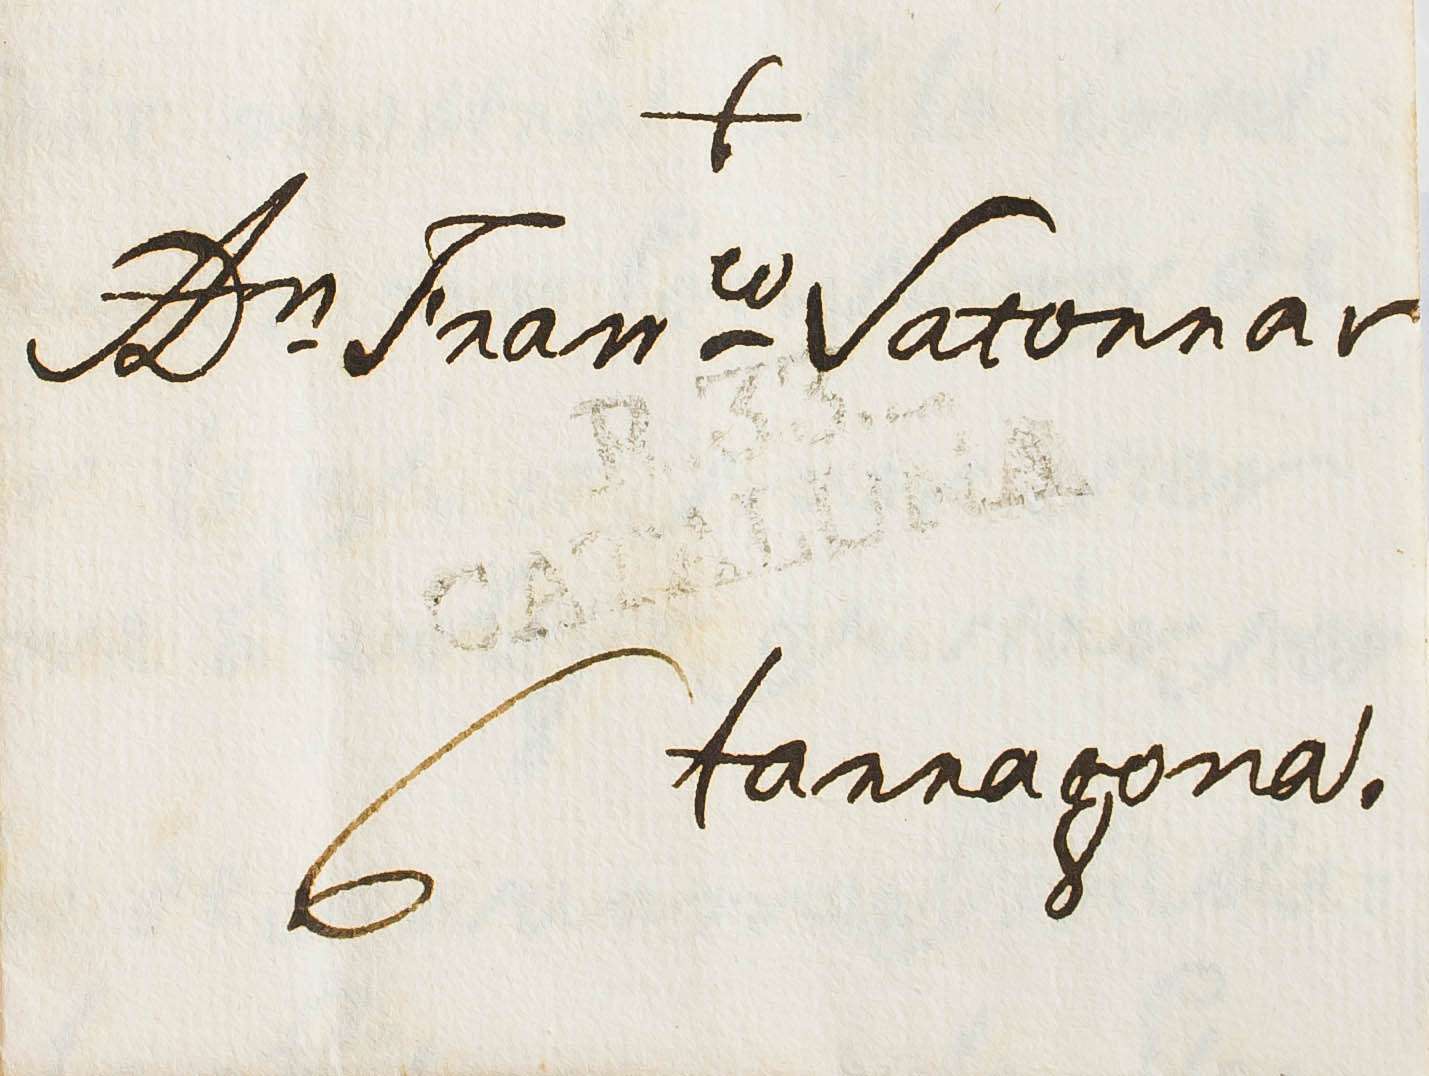 +
Dn Franco Satorras
R.33.
CATALUÑA
6 tarragona.